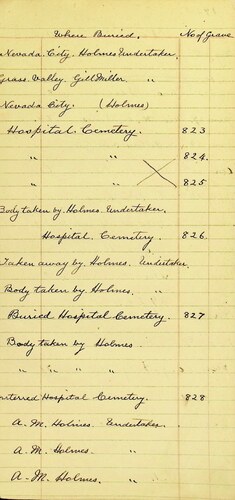 Where Buried. No of Grave
Nevada City. Holmes Undertaker.
Grass Valley Gill Miller "
Nevada City (Holmes)
Hospital Cemetery. 823
" " 824.
" " 825
Body taken by Holmes Undertaker.
Hospital Cemetery. 826.
Taken away by Holmes. Undertaker.
Body taken by Holmes. "
Buried Hospital Cemetery. 827
Body taken by Holmes
" " " "
nterred Hospital Cemetery. 828
A. M. Holmes. Undertaker.
A. M. Holmes. "
A. M. Holmes. "